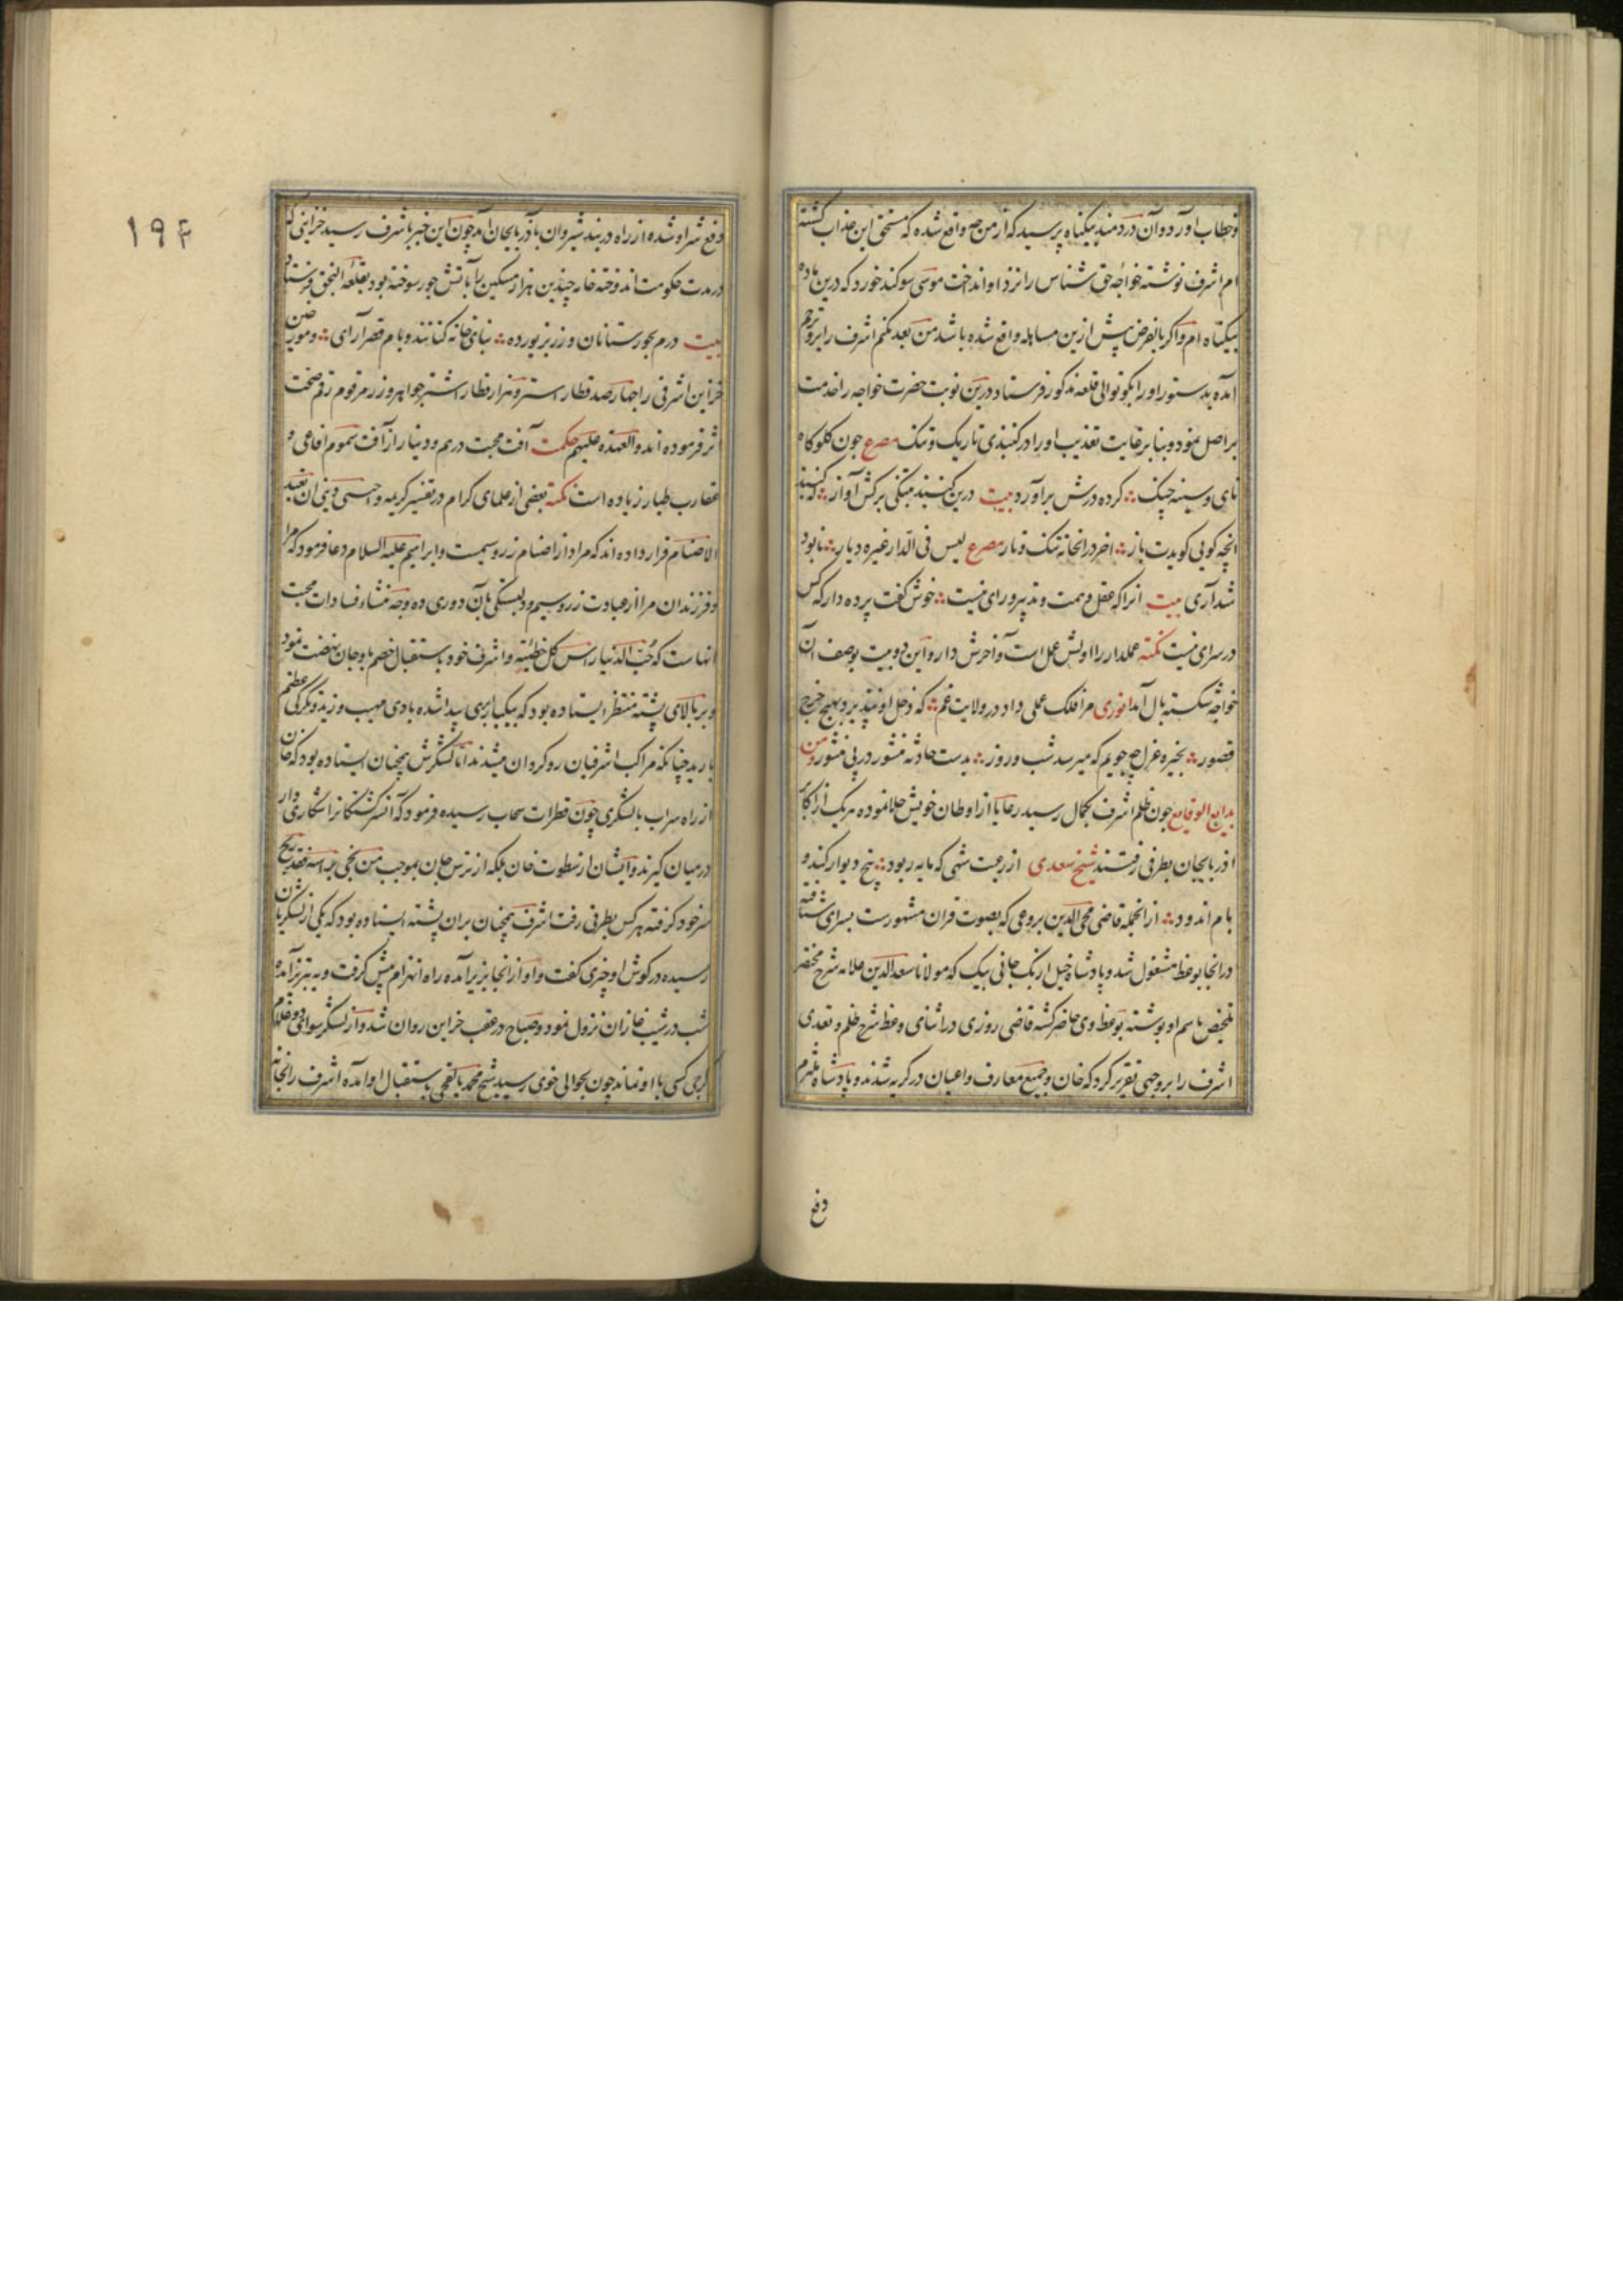 و خطاب آورد و آن دردمند بیکناه پرسید که از من چه واقع شده که مستحق این عذاب کشته
ام اشرف نوشته خواجه حق شناس را نزد او انداخت موسی سوکند خورد که درین باده
بیکناه ام و اکر بالفرض پیش ازین مساهله واقع شده باشد من بعد نکنم اشرف را برو ترحم
آمده بدستور او را بکوتوالی قلعه مذکور فرستاد درین نوبت حضرت خواجه را خدمت
بر اصل نمود و بنا بر غایت تعذیب او را در کنبدی تاریک و تنک مصرع جون کلوکاه
نای و سینه چنک کرده درش برآورد بیت درین کنبد بنیکی برکش آواز که کنبد
انچه کویی کویدت باز اخر در انخانه تنک و تار مصرع لیس فی الدار غیره دیار نابود
شد آری بیت انرا که عقل و همت و تدبیر و رای نیست خوش کفت پرده دار که کس
در سرای نیست نکته عملدار را اولش عمل است و آخرش دار و این دو بیت بوصف آن
خواجه شکسته بال آمد انوری مرا فلک عملی داد در ولایت غم که دخل او نپذیرد بهیچ خرج
قصور بخیره عزل چه جویم که میرسد شب و روز بدست حادثه منشور در پی منشور و من
بدایع الوقایع جون ظلم اشرف بکمال رسید رعایا از اوطان خویش جلا نموده هر یک از اکابر
اذربایجان بطرفی رفتند شیخ سعدی از رعیت شهی که مایه ربود پنج دیوار کند و
بام اندود از انجمله قاضی محی الدین بردعی که بصوت قران مشهورست بسرای شتافته
در انجا بوعظ مشغول شد و پادشاه خیل ازبک جانی بیک که مولانا سعد الدین علامه شرح مختصر
تلخیص باسم او نوشته بوعظ وی حاضر کشته قاضی روزی در اثنای وعظ شرح ظلم و تعدی
اشرف را بروجهی تقریر کرد که خان و جمیع معارف و اعیان در کریه شدند و پادشاه ملتزم
دفع
۱۹۴
دفع شر او شده از راه دربند شیروان بآذربایجان آمد چون این خبر باشرف رسید خزاینی که
در مدت حکومت اندوخته خانه چندین هزار مسکین را بآتش جور سوخته بود بقلعه النجق فرستاد
بیت درم بجورستانان و زر بزیور ده بنای خانه کنانند و بام قصر آرای و مورخین
خزاین اشرفی را چهارصد قطار استر و هزار قطار اشتر جواهر و زر مرقوم رقم صحت
اثر فرموده اند و العهده علیهم حکمت آفت محبت درهم و دینار از آفت سموم افاعی و
عقارب طیار زیاده است نکته بعضی از علمای کرام در تفسیر کریمه و اجنبی و بنی ان نعبد
الاصنام قرار داده اند که مراد از اصنام زر و سیمست و ابراهیم علیه السلام دعا فرمود که مرا
و فرزندان مرا از عبادت زر و سیم و دلبستکی بآن دوری ده و چه منشاء فسادات محبت
انهاست که حب الدنیا راس کل خطیئه و اشرف خود باستقبال خصم باوجان نهضت نمود
و بر بالای پشته منتظر ایستاده بود که بیکبار ابری پیدا شده بادی مهیب وزید و تکرکی عظیم
بارید چنانکه مراکب اشرفیان روکردان میشدند اما لشکرش همچنان ایستاده بود که خان
از راه سراب بالشکری چون قطرات سحاب رسیده فرمود که آن سرکشتکانرا شکاری وار
در میان کیرند و ایشان از سطوت خان بلکه از ترس جان بموجب من نجی براسه فقد ربح
سر خود کرفته هر کس بطرفی رفت اشرف همچنان بران پشته ایستاده بود که یکی از لشکریانش
رسیده در کوش او چیزی کفت و او از انجا بزیر آمده راه انهزام پیش کرفت و به تبریز آمده
شب در شنب غازان نزول نمود و صباح در عقب خزاین روان شد و از لشکر سوای دو غلام
کرجی کسی با او نماند چون بحوالی خوی رسید شیخ محمد بالقجی باستقبال او آمده اشرف را بخانه